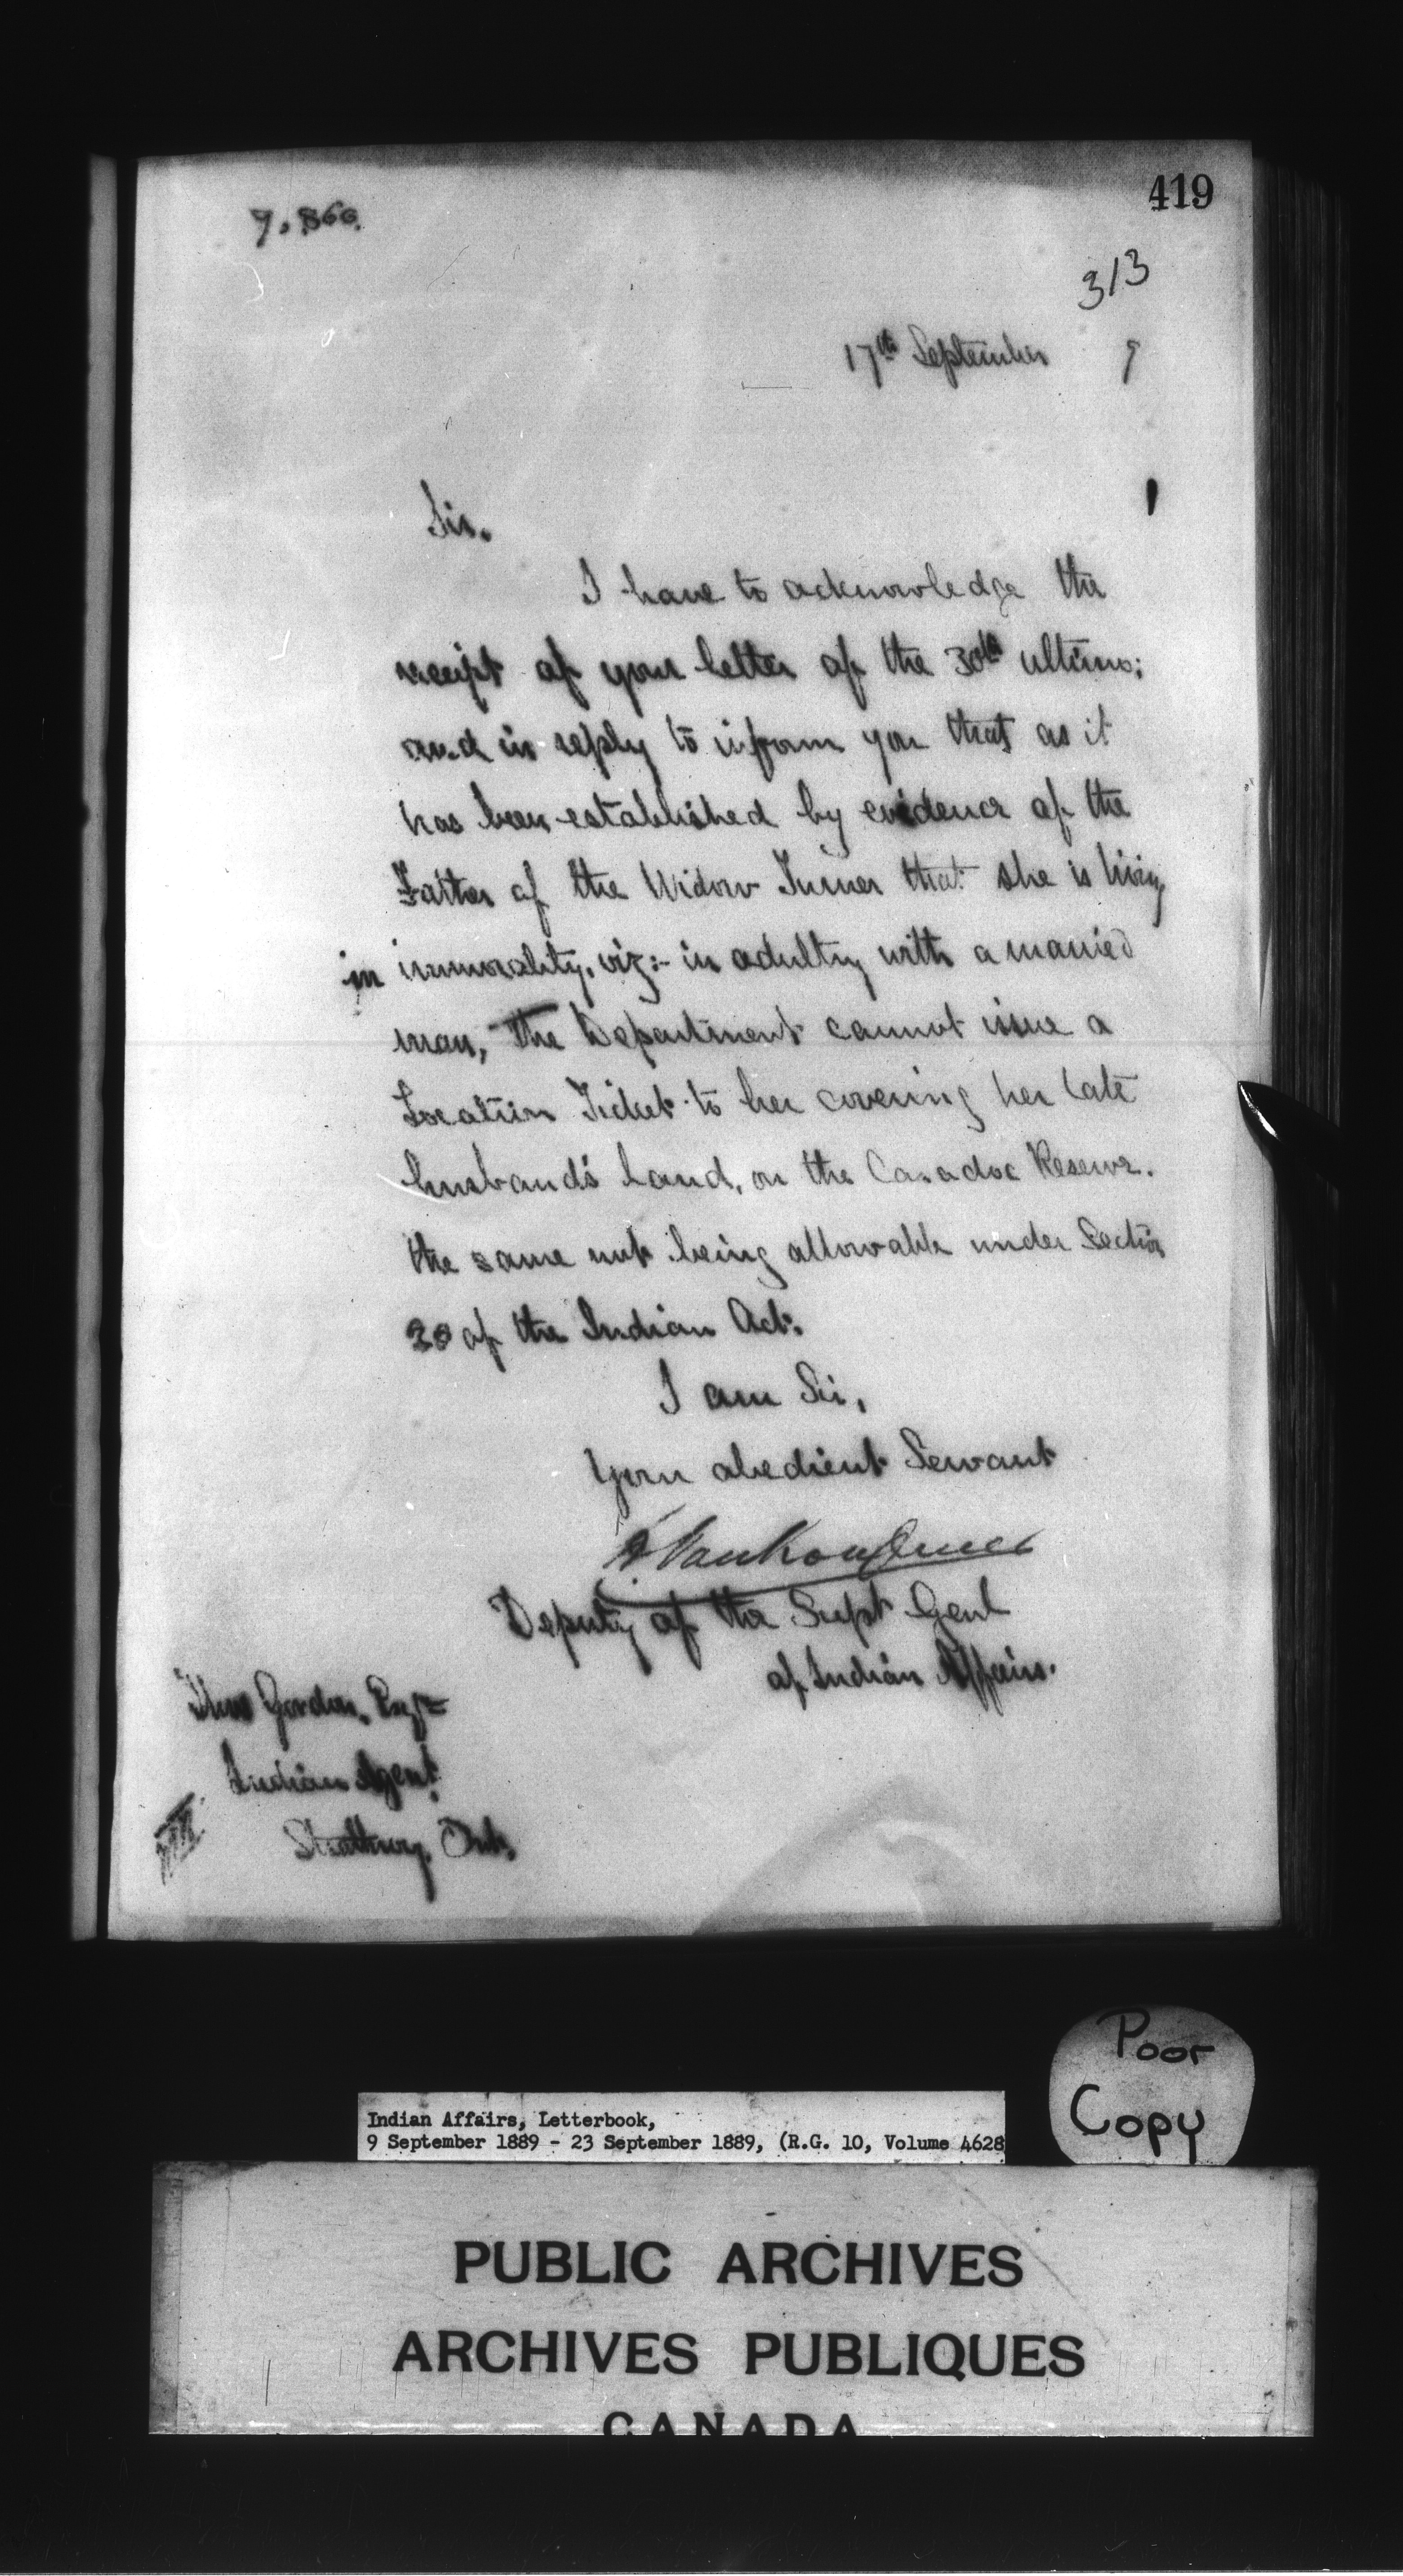 419
7.860.
313
17th September 9
Sir.
I have to acknowledge the
receipt of your letter of the 30th ultimo;
and in reply to inform you that as it
has been established by evidence of the
Father of the Widow Turner that she is living
in immorality, viz:- in adultry with a married
man, the Department cannot issue a
Location Ticket to her covering her late
husband's land, on the Caradoc Reserve.
the same not being allowable under Section
20 of the Indian Act.
I am Sir,
Your obedient Servant
L. Vankoughnet
Deputy of the Supt Genl
of Indian Affairs.
Thos Gordon, Esqre
Indian Agent,
Strathroy, Ont.
Poor
Copy
Indian Affairs, Letterbook,
9 September 1889 - 23 September 1889, (R.G. 10, Volume 4628
PUBLIC ARCHIVES
ARCHIVES PUBLIQUES
CANADA